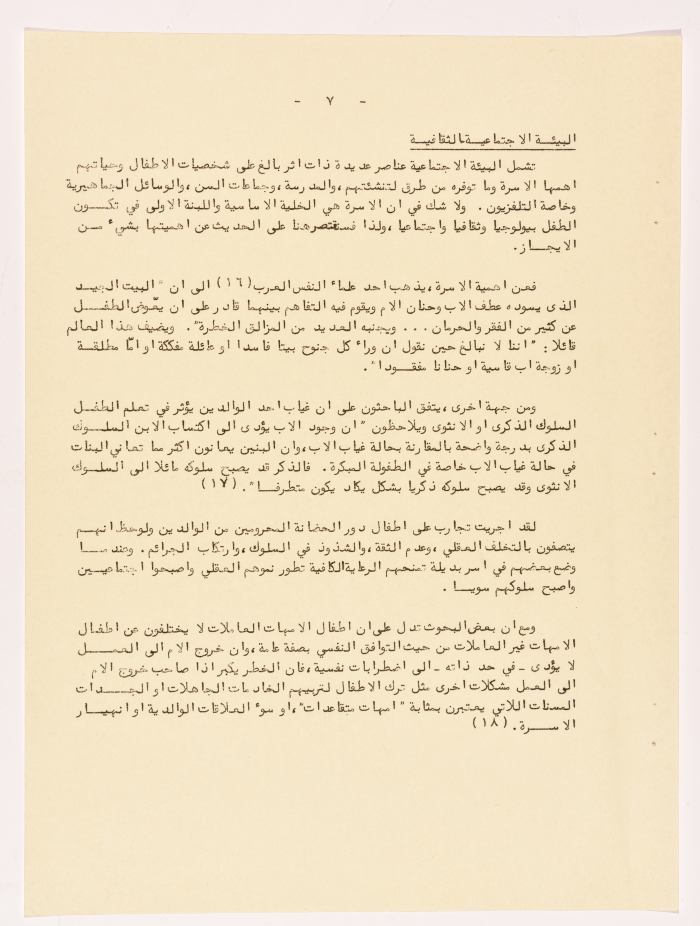 - ٧ -
البيئة الاجتماعية الثقافية
تشمل البيئة الاجتماعية عناصر عديدة ذات اثر بالغ على شخصيات الاطفال وحياتهم
اهمها الاسرة وما توفره من طرق لتنشئتهم ،والمدرسة ،وجماعات السن ،والوسائل الجماهيرية
وخاصة التلفزيون . ولا شك في ان الاسرة هي الخلية الاساسية واللبنة الاولى في تكـــون
الطفل بيولوجيا وثقافيا واجتماعيا ،ولذا فسنقتصر هنا على الحديث عن اهميتها بشيء مــن
الايجاز .
فعن اهمية الاسرة ،يذهب احد علماء النفس العرب (١٦) الى ان "البيت الجيــد
الذى يسوده عطف الاب وحنان الام ويقوم فيه التفاهم بينهما قادر على ان يعّوض الطفــل
عن كثير من الفقر والحرمان ... ويجنبه العديد من المزالق الخطرة". ويضيف هذا العالم
قائلا : "اننا لا نبالغ حين نقول ان وراء كل جنوح بيتا فاسدا او عائلة مفككة او امّا مطلقــة
او زوجة اب قاسية او حنانا مفقودا".
ومن جهة اخرى ،يتفق الباحثون على ان غياب احد الوالدين يؤثر في تعلم الطفــل
السلوك الذكرى او الانثوى ويلاحظون "ان وجود الاب يؤدى الى اكتساب الابن السلــوك
الذكرى بدرجة واضحة بالمقارنة بحالة غياب الاب ،وان البنين يعانون اكثر مما تعاني البنات
في حالة غياب الاب خاصة في الطفولة المبكرة . فالذكر قد يصبح سلوكه مائلا الى السلــوك
الانثوى وقد يصبح سلوكه ذكريا بشكل يكاد يكون متطرفــا". (١٧)
لقد اجريت تجارب على اطفال دور الحضانة المحرومين من الوالدين ولوحظ انهــم
يتصفون بالتخلف العقلي ،وعدم الثقة ،والشذوذ في السلوك ،وارتكاب الجرائم . وعندمــا
وضع بعضهم في اسر بديلة تمنحهم الرعاية الكافية تطور نموهم العقلي واصبحوا اجتماعيــين
واصبح سلوكهم سويــا .
ومع ان بعض البحوث تدل على ان اطفال الامهات العاملات لا يختلفون عن اطفــال
الامهات غير العاملات من حيث التوافق النفسي بصفة عامة ،وان خروج الام الى العمــل
لا يؤدى - في حد ذاته - الى اضطرابات نفسية ،فان الخطر يكبر اذا صاحب خروج الام
الى العمل مشكلات اخرى مثل ترك الاطفال لتربيهم الخادمات الجاهلات او الجــدات
المسنات اللاتي يعتبرن بمثابة "امهات متقاعدات" ،او سوء العلاقات الوالدية او انهيــار
الاســرة . (١٨)